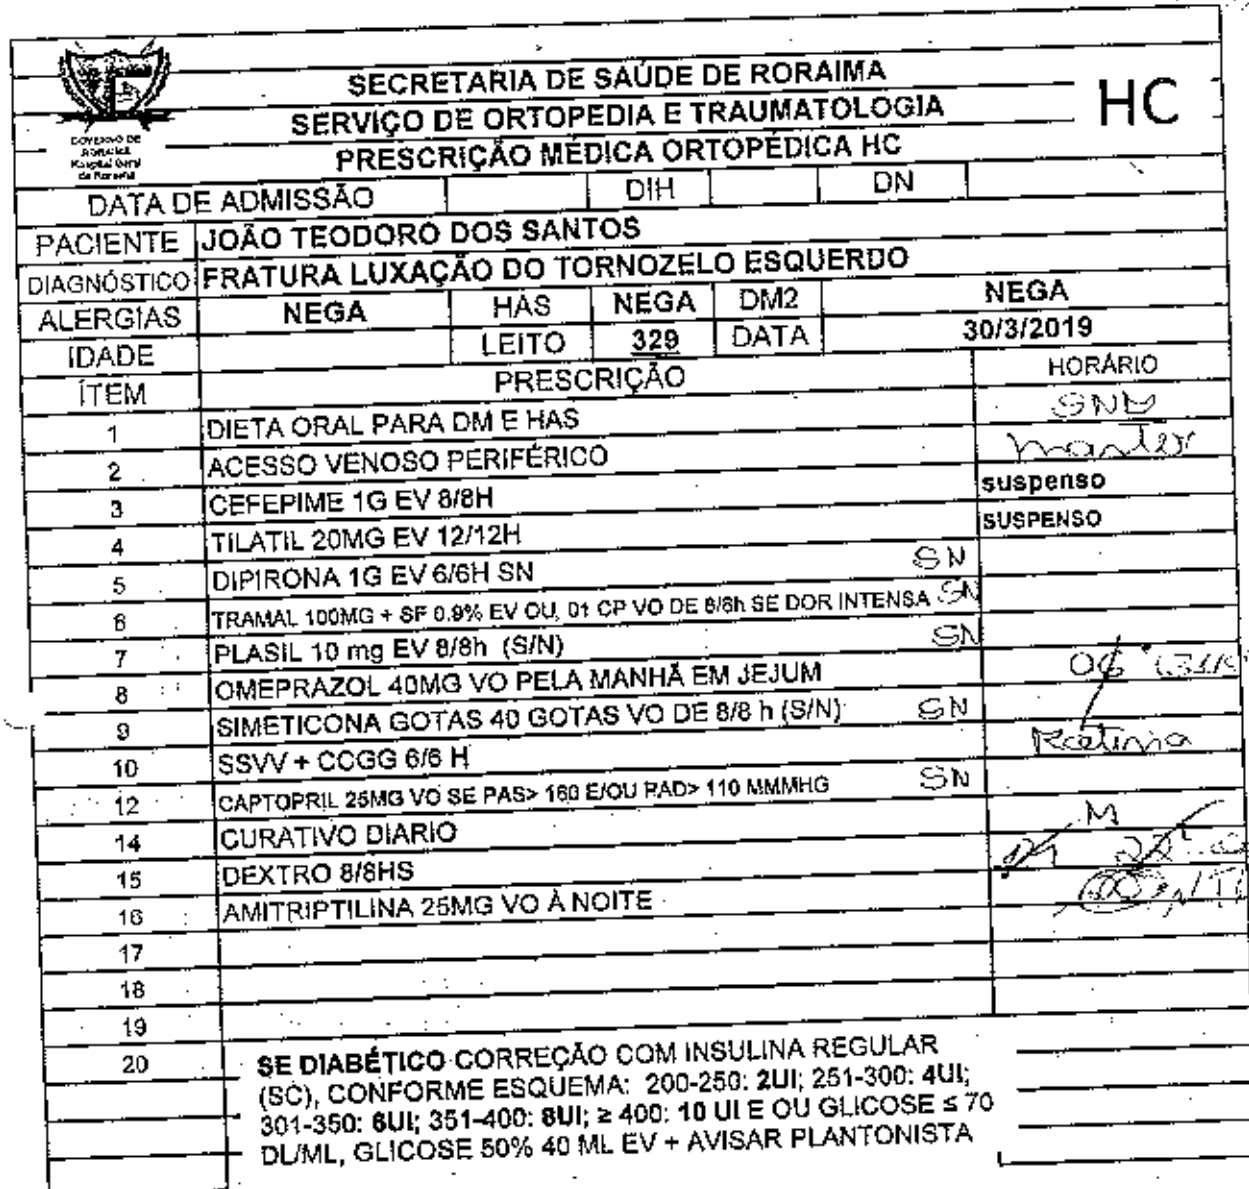 SECRETARIA DE SAÚDE DE RORAIMA
HC
SERVIÇO DE ORTOPEDIA E TRAUMATOLOGIA
PRESCRIÇÃO MÉDICA ORTOPÉDICA HC
GOVERNO DE
RORAIMA
Hospital Geral
de Roraima
DATA DE ADMISSÃO DIH DN
PACIENTE JOÃO TEODORO DOS SANTOS
DIAGNÓSTICO FRATURA LUXAÇÃO DO TORNOZELO ESQUERDO
ALERGIAS NEGA HAS NEGA DM2 NEGA
IDADE LEITO 329 DATA 30/3/2019
ÍTEM PRESCRIÇÃO HORÁRIO
1 DIETA ORAL PARA DM E HAS SND
2 ACESSO VENOSO PERIFÉRICO manter
3 CEFEPIME 1G EV 8/8H suspenso
4 TILATIL 20MG EV 12/12H SUSPENSO
5 DIPIRONA 1G EV 6/6H SN SN
6 TRAMAL 100MG + SF 0.9% EV OU, 01 CP VO DE 8/8h SE DOR INTENSA SN
7 PLASIL 10 mg EV 8/8h (S/N) SN
8 OMEPRAZOL 40MG VO PELA MANHÃ EM JEJUM 06
9 SIMETICONA GOTAS 40 GOTAS VO DE 8/8 h (S/N) SN
10 SSVV + CCGG 6/6 H Rotina
12 CAPTOPRIL 25MG VO SE PAS> 160 E/OU PAD> 110 MMMHG SN
14 CURATIVO DIARIO M
15 DEXTRO 8/8HS 22
16 AMITRIPTILINA 25MG VO À NOITE
17
18
19
20 SE DIABÉTICO CORREÇÃO COM INSULINA REGULAR
(SC), CONFORME ESQUEMA: 200-250: 2UI; 251-300: 4UI;
301-350: 6UI; 351-400: 8UI; ≥ 400: 10 UI E OU GLICOSE ≤ 70
DL/ML, GLICOSE 50% 40 ML EV + AVISAR PLANTONISTA